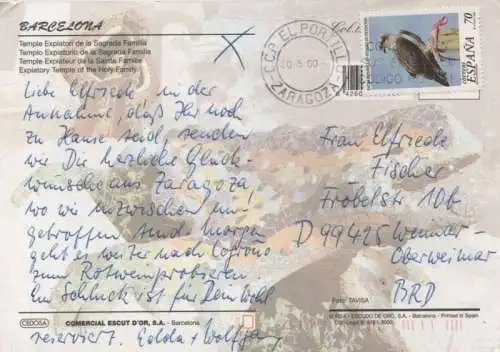 BARCELONA
Temple Expiatori de la Sagrada Familia
Templo Expiatorio de la Sagrada Familia
Temple Expiateur de la Sainte Famille
Expiatory Temple of the Holy Family
Liebe Elfriede in der
Annahme, daß Ihr noch
zu Hause seid, senden
wir Dir herzliche Glück-
wünsche aus Zaragoza,
wo wir inzwischen ein-
getroffen sind. Morgen
geht es weiter nach Logroño
zum Rotweinprobieren
Ein Schluck ist für Dein Wohl
reserviert. + Wolfgang
CCP EL PORTILLO
ZARAGOZA
70
ESPAÑA
Frau Elfriede
Fischer
Fröbelstr. 10b
D 99425 Weimar-
Oberweimar
BRD
Foto: TAVISA
CEDOSA
COMERCIAL ESCUT D'OR, S.A. - Barcelona
ESCUDO DE ORO, S.A. - Barcelona - Printed in Spain